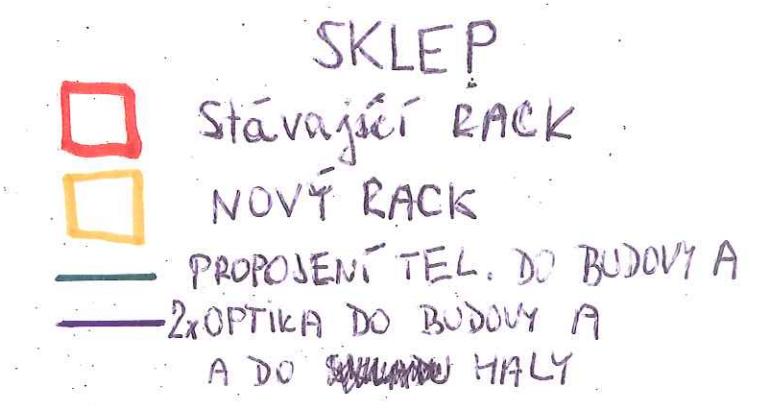 SKLEP
Stávající RACK
NOVÝ RACK
PROPOJENÍ TEL. DO BUDOVY A
2x OPTIKA DO BUDOVY A
A DO HALY